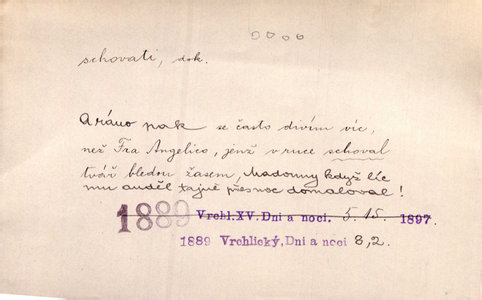 schovati, dok.
A ráno pak se často divím víc,
než Fra Angelico, jenž v ruce schoval
tvář bledou žasem, Madonny když líc
mu anděl tajně přes noc domaloval!
1889 Vrchl. XV. Dni a noci. 5. 15. 1897.
1889 Vrchlický, Dni a noci 8,2.